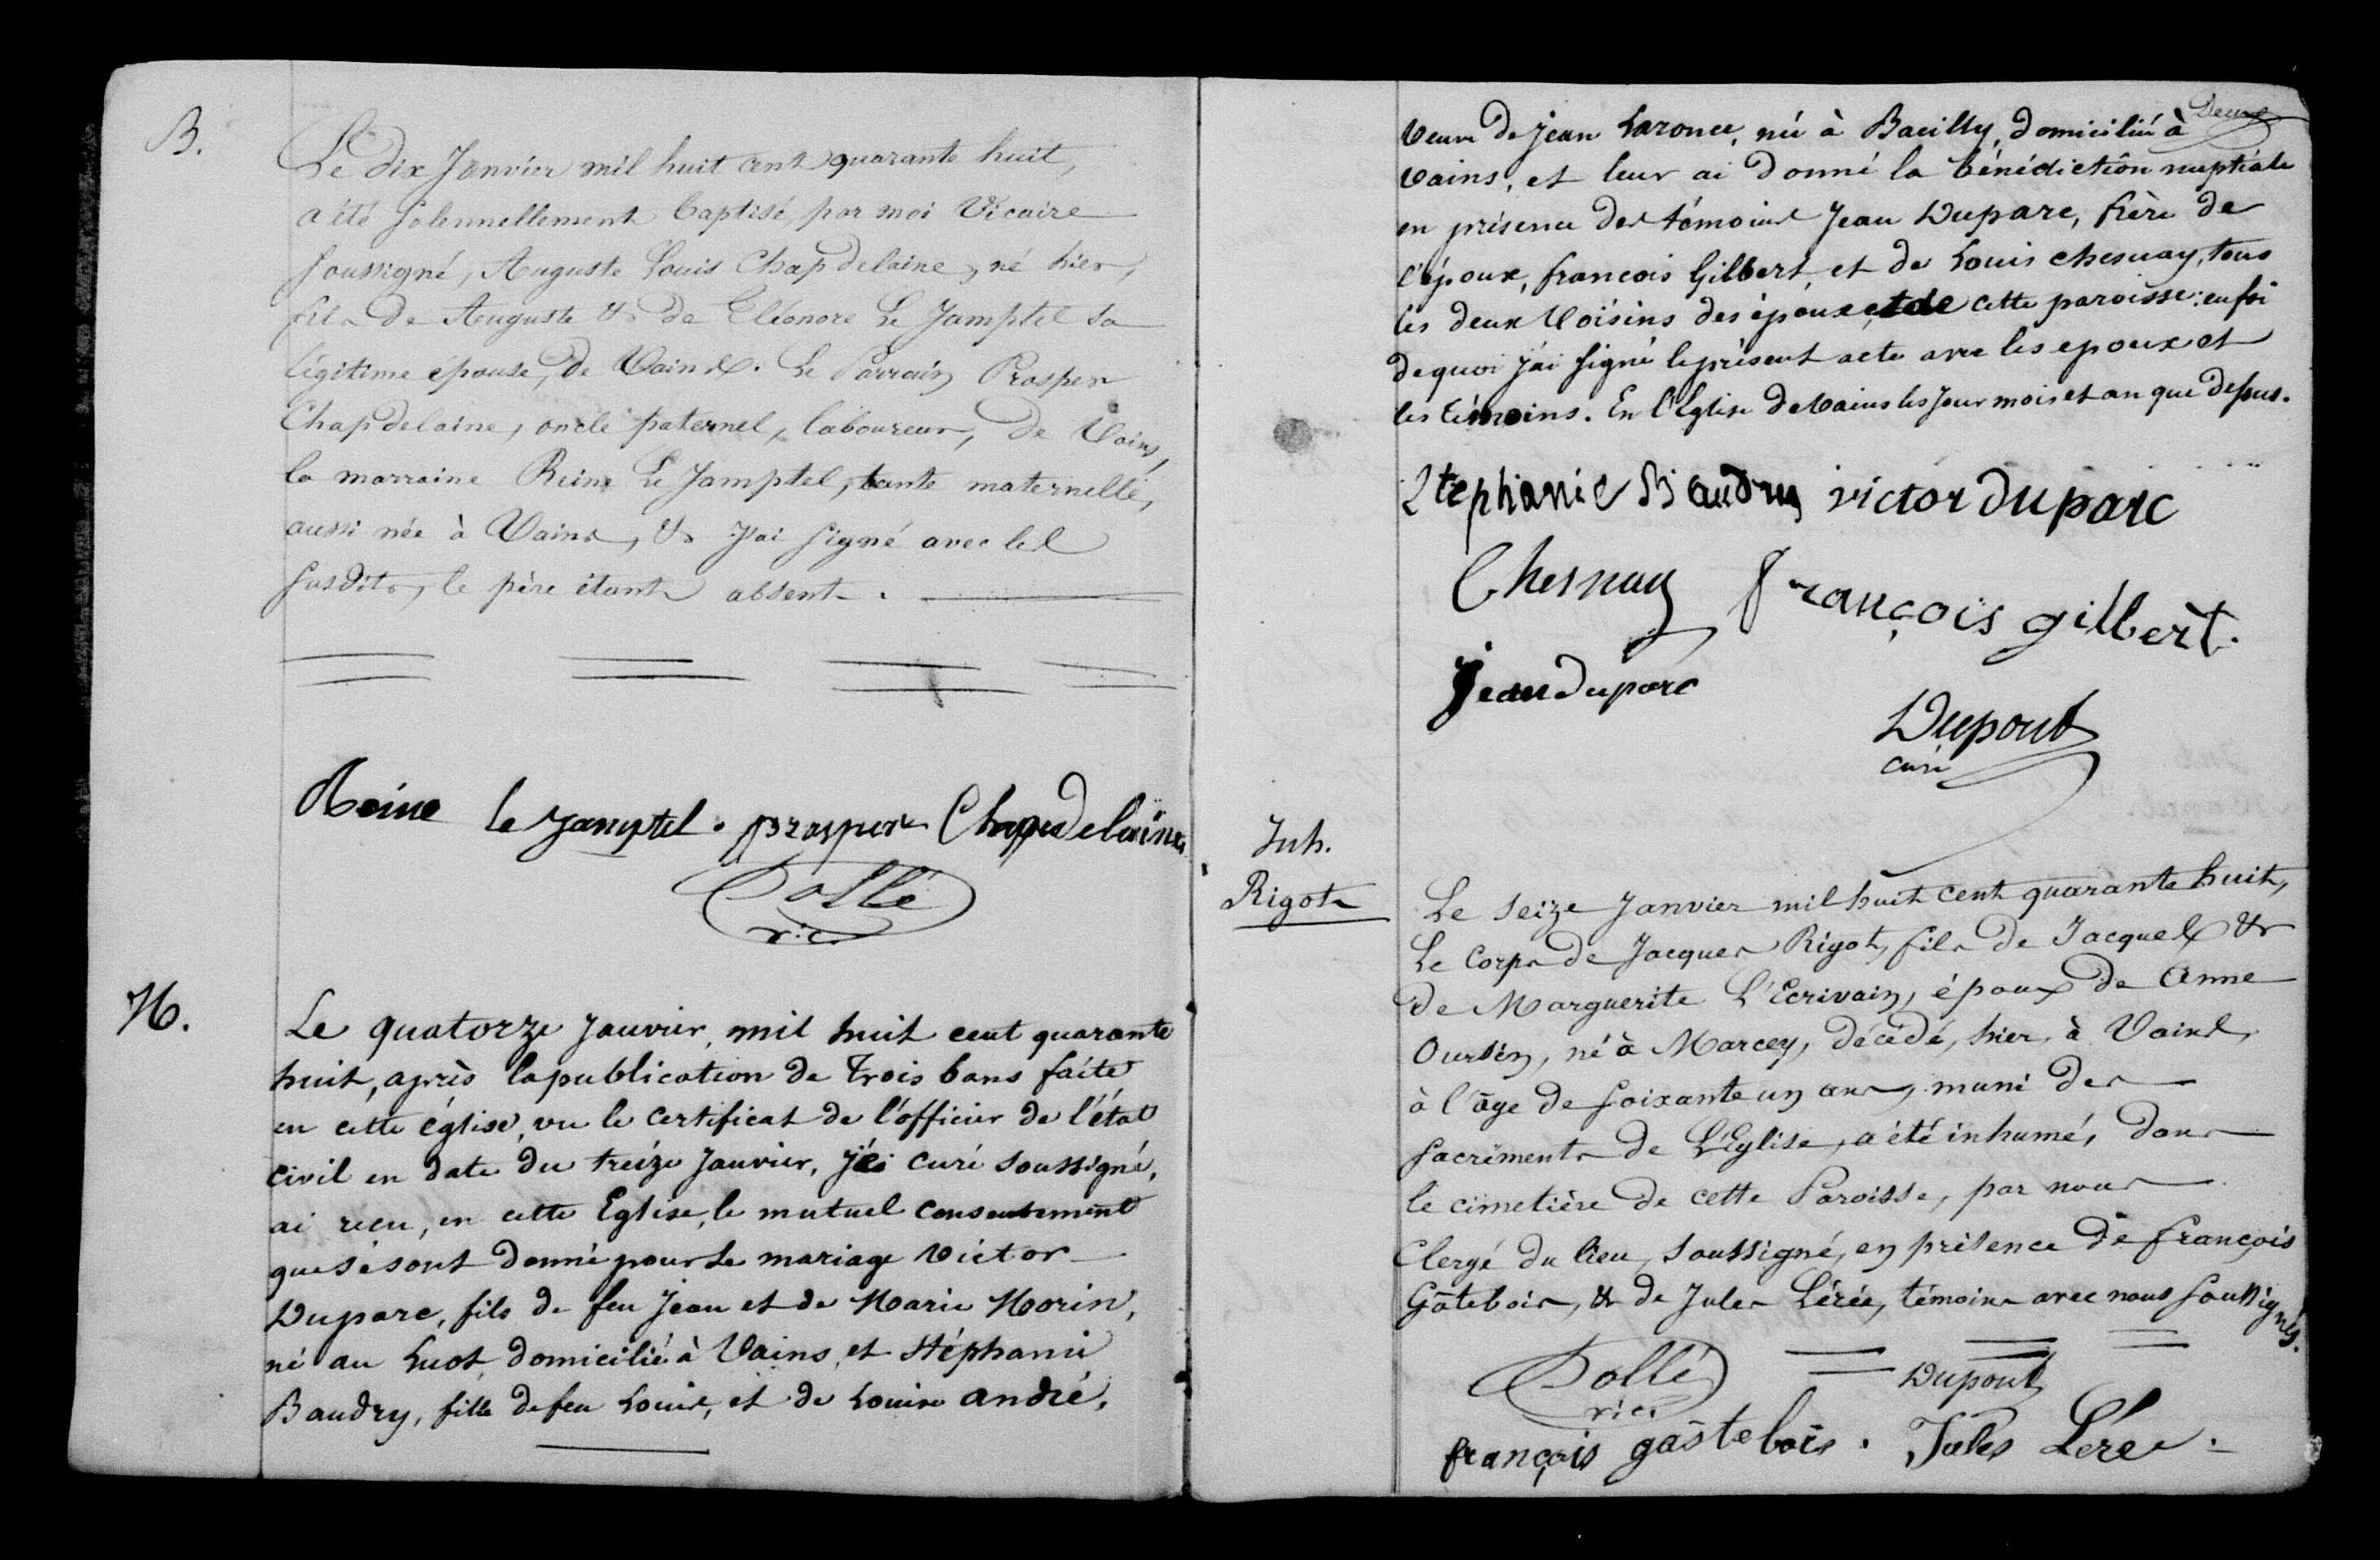 B.
Le dix Janvier mil huit cent quarante huit,
a été solennellement baptisé, par moi Vicaire
soussigné, Auguste Louis Chapdelaine, né hier,
fils de Auguste & de Eléonore Le Jamptel sa
légitime épouse, de Vains. Le Parrain Prosper
Chapdelaine, oncle paternel, laboureur, de Vains,
la marraine Reine Le Jamptel, tante maternelle,
aussi née à Vains, & j'ai signé avec les
susdits, le père étant absent.
Reine le jamptel. prosper Chapdelaine
Pollé
vic.
M.
Le quatorze Janvier, mil huit cent quarante
huit, après la publication de trois bans faite
en cette église, vu le certificat de l'officier de l'état
civil en date du treize Janvier, curé soussigné,
ai reçu, en cette Eglise, le mutuel consentement
que se sont donné pour le mariage Victor
Duparc, fils de feu Jean et de Marie Morin,
né au Luot, domicilié à Vains, et Stéphanie
Baudry, fille de feu Louis, et de Louise andré,
Deux
veuve de Jean Laronce, née à Bacilly, domiciliée à
Vains, et leur ai donné la bénédiction nuptiale
en présence des témoins Jean Duparc, frère de
l'époux, francois Gilbert, et de Louis chesnay, tous
les deux Voisins des époux et de cette paroisse: en foi
de quoi j'ai signé le présent acte avec les epoux et
les témoins. En l'Eglise de Vains les jour mois et an que dessus.
Stephanie Baudry victor duparc
Chesnay françois gilbert.
Jean duparc
Dupont
curé
Inh.
Rigot
Le seize Janvier mil huit cent quarante huit,
Le corps de Jacques Rigot, fils de Jacques &
de Marguerite L'Ecrivain, époux de Anne
Oursin, né à Marcey, décédé, hier, à Vains,
à l'âge de soixante un ans, muni des
sacrements de L'Eglise, a été inhumé, dans
le cimetière de cette Paroisse, par nous
Clergé du lieu, soussigné, en présence de françois
Gâtebois, & de Jules Lérée, témoins avec nous soussignés.
Pollé Dupont
vic.
françois gâstebois. Jules Lérée.